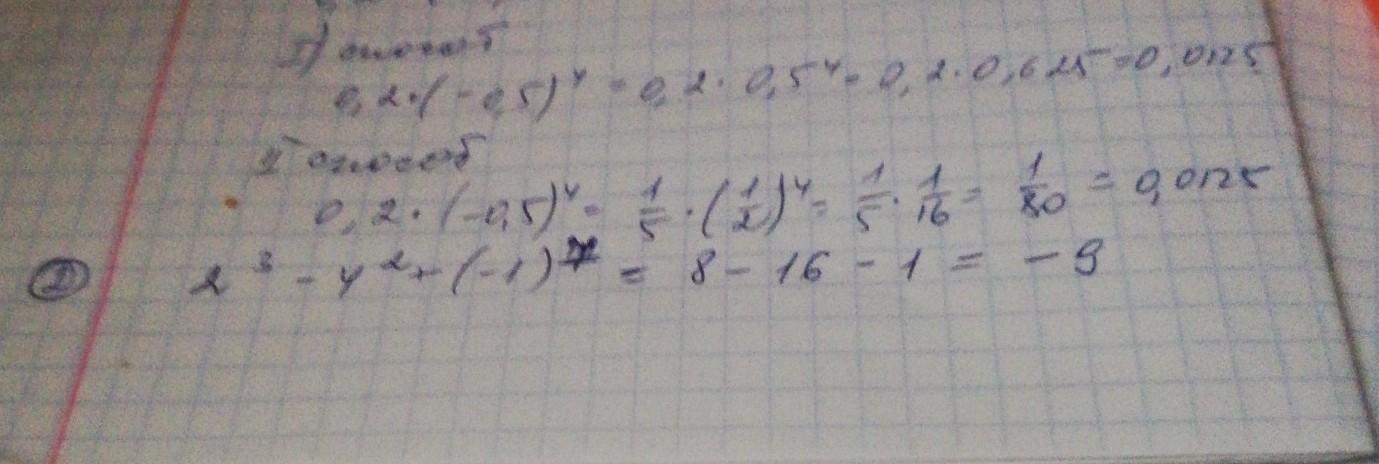 I) способ
0,2·(-0,5)⁴ = 0,2·0,5⁴ = 0,2·0,625 = 0,0125
II способ
0,2·(-0,5)⁴ = 1/5·(1/2)⁴ = 1/5·1/16 = 1/80 = 0,0125
② 2³ - 4² + (-1)⁷ = 8 - 16 - 1 = -9